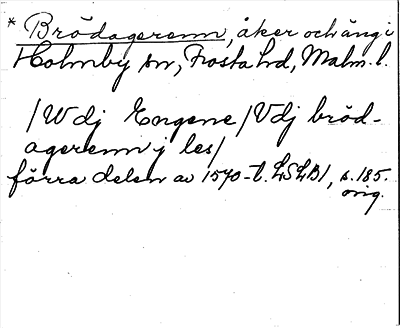 * Brödagerenn, åker och äng i
Holmby sn, Frosta hd, Malm. l.
/W dj Engene/Vdj bröd-
agerenn j les/
förra delen av 1570-t. LSLB1, s. 185.
orig.